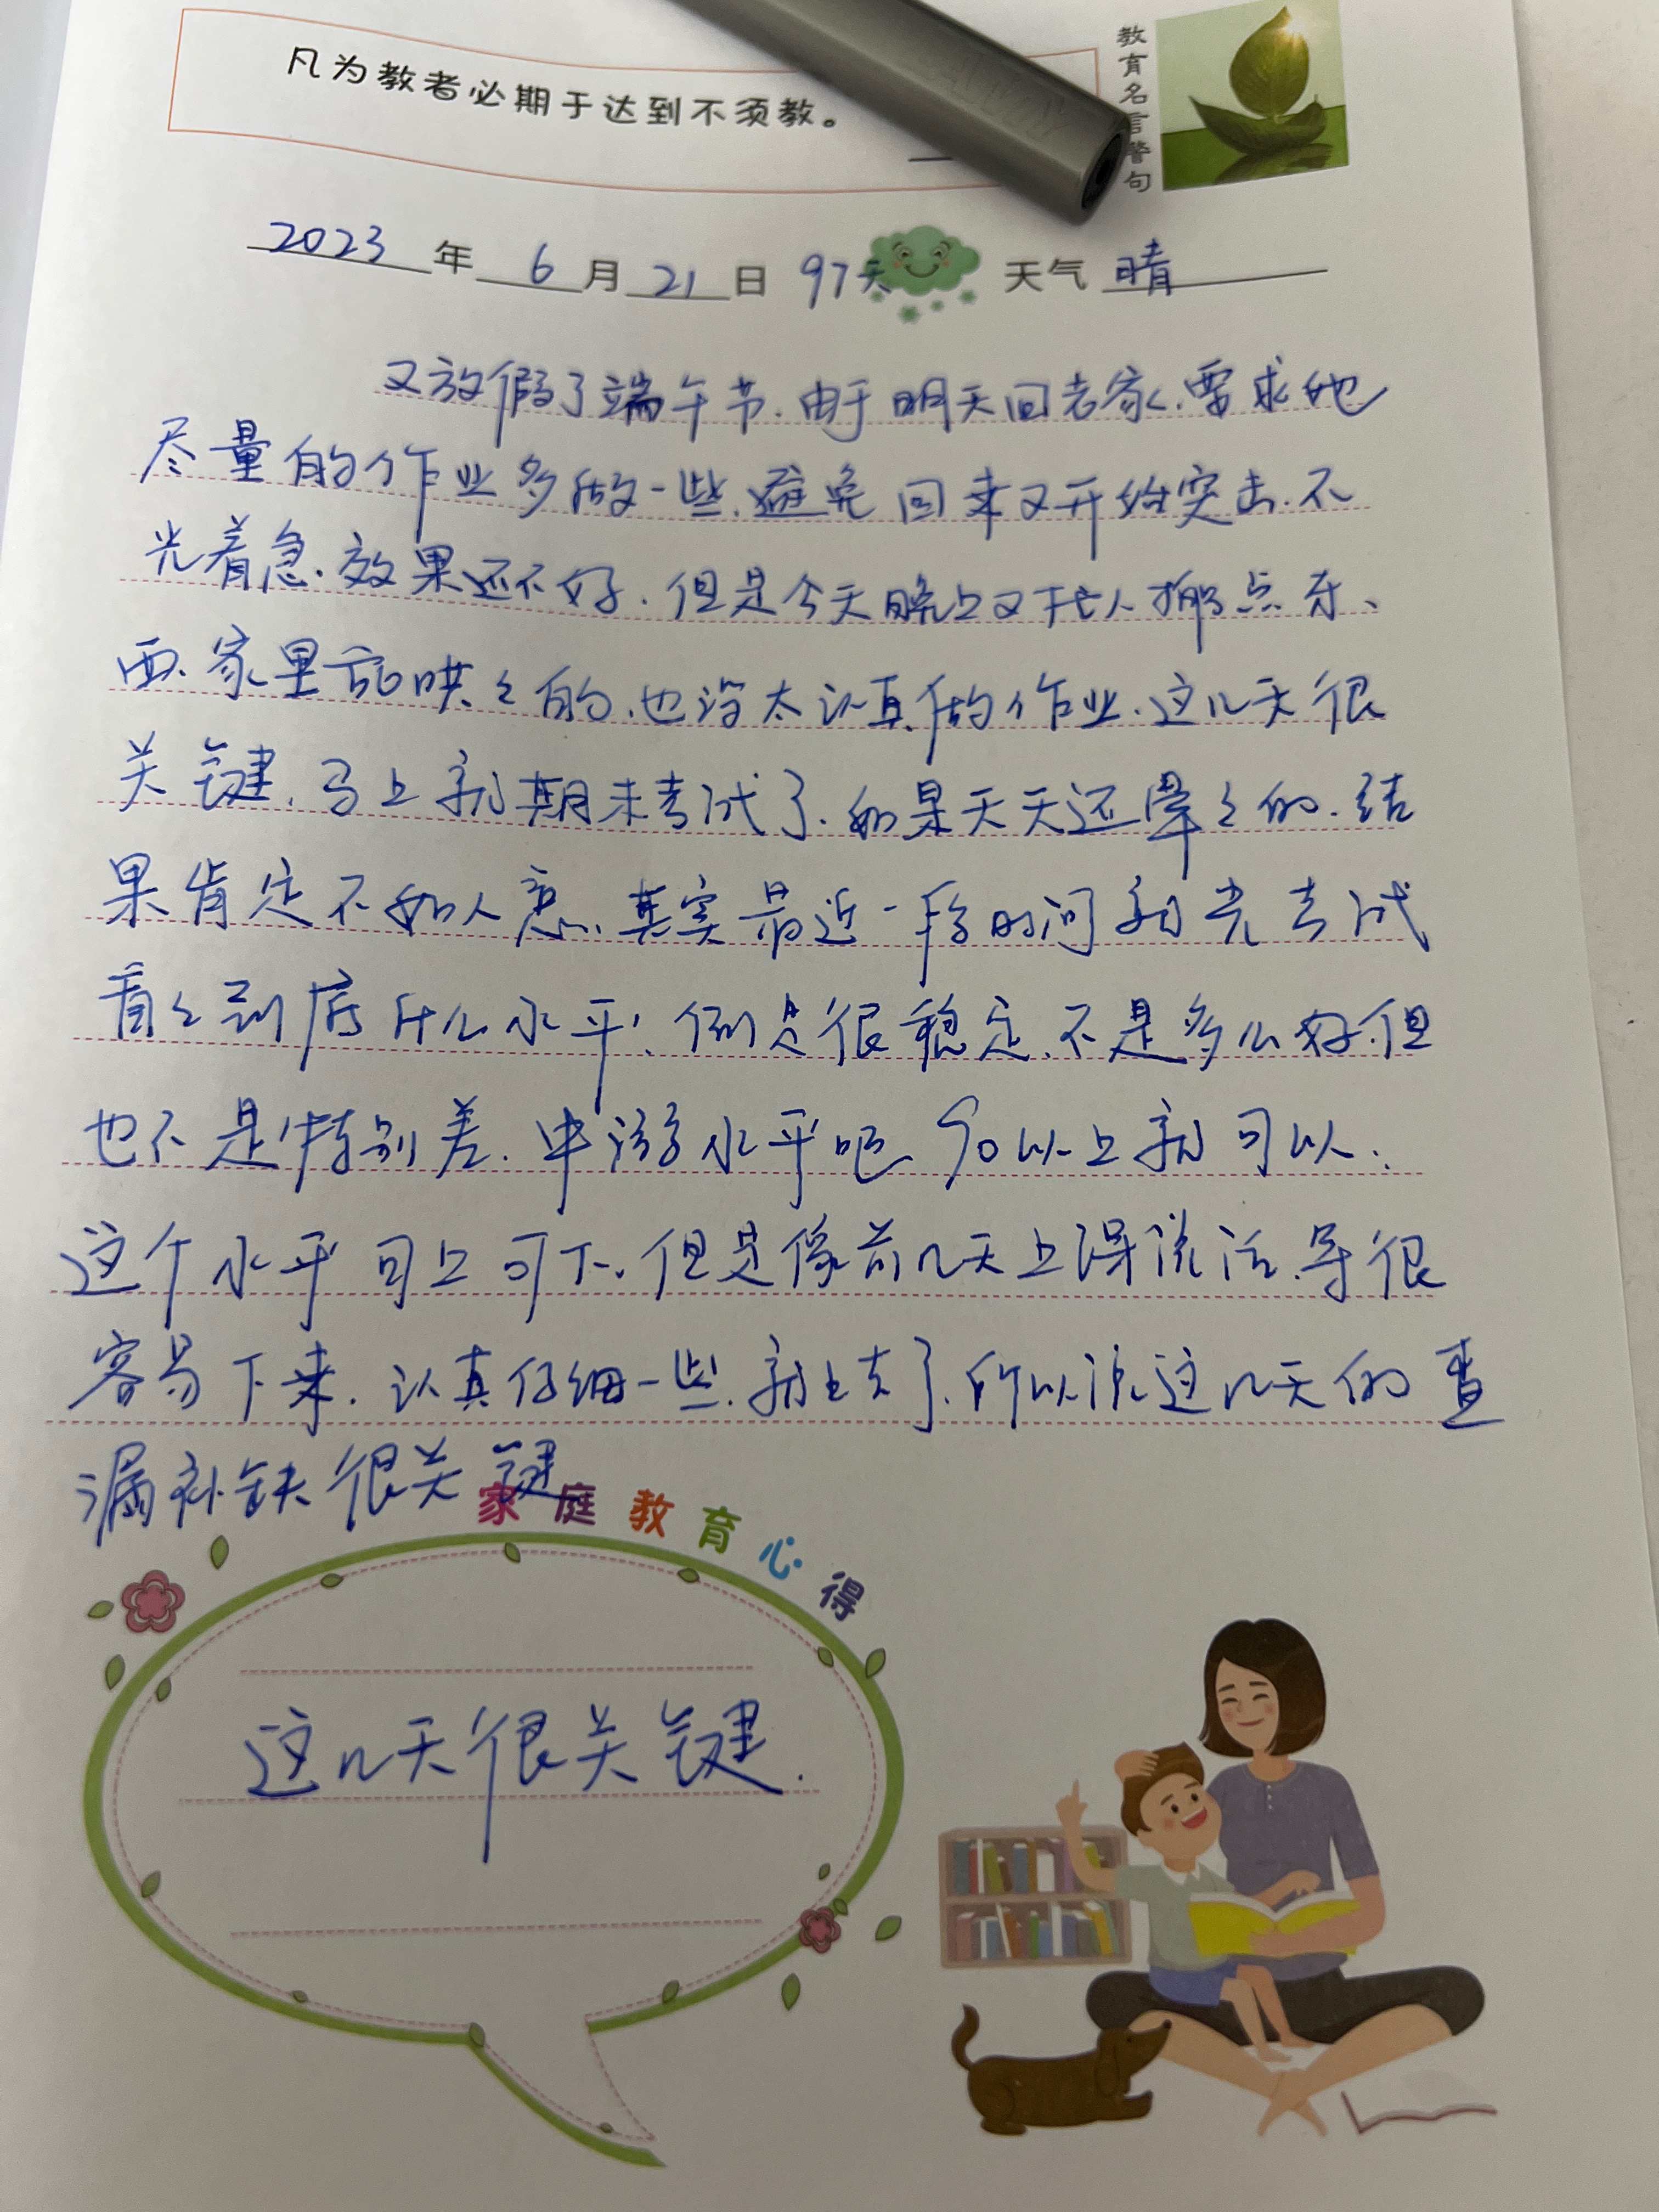 凡为教者必期于达到不须教。
教育名言警句
2023年6月21日 97天 天气 晴
又放假了端午节.由于明天回老家.要求他
尽量的作业多做一些.避免回来又开始突击.不
光着急.效果还不好.但是今天晚上又找人搬点东
西.家里乱哄々的.也没太认真做作业.这几天很
关键.马上就期末考试了.如果天天还晕々的.结
果肯定不如人意.其实最近一段时间就光考试
看々到底什么水平.倒是很稳定.不是多么好.但
也不是特别差.中游水平吧 90以上就可以.
这个水平可上可下.但是像前几天上课说话.导很
容易下来.认真仔细一些.就上去了.所以说这几天的查
漏补缺很关键
家庭教育心得
这几天很关键.